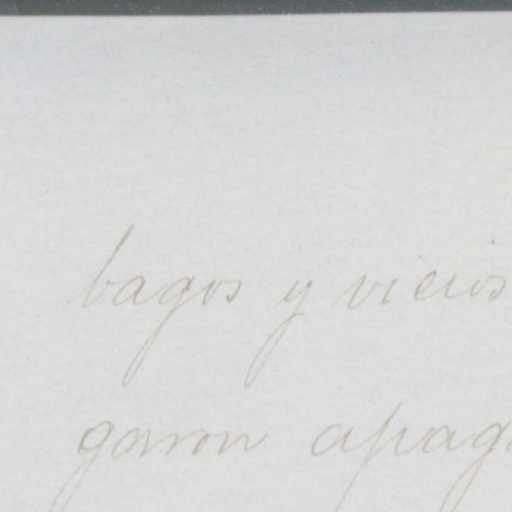 bagos y vicios
garon apag